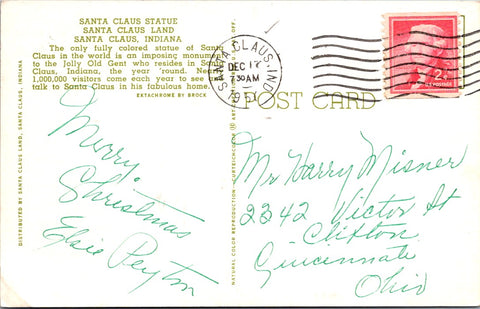 SANTA CLAUS STATUE
SANTA CLAUS LAND
SANTA CLAUS, INDIANA
The only fully colored statue of Santa
Claus in the world is an imposing monument
to the Jolly Old Gent who resides in Santa
Claus, Indiana, the year 'round. Nearly
1,000,000 visitors come each year to see and
talk to Santa Claus in his fabulous home.
EKTACHROME BY BROCK
DISTRIBUTED BY SANTA CLAUS LAND, SANTA CLAUS, INDIANA
Merry
Christmas
Elsie Peyton
NATURAL COLOR REPRODUCTION CURTEICHCOLOR ART
OFF.
SANTA CLAUS, IND.
DEC 17
7:30 AM
POST CARD
2¢
U.S. POSTAGE
Mr Harry Misner
2342 Victor St
Clifton
Cincennate
Ohio